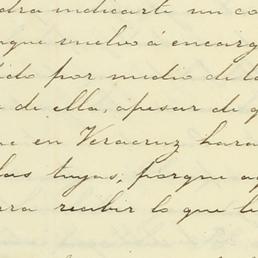 podra indicarte un co
que vuelvo á encarg
ido por medio de la
de ella, apesar de q
en Veracruz hara
las tuyas, porque aq
para recibir lo que tu